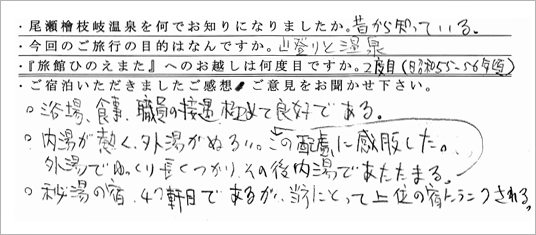 ・尾瀬檜枝岐温泉を何でお知りになりましたか。昔から知っている。
・今回のご旅行の目的はなんですか。山登りと温泉
・『旅館ひのえまた』へのお越しは何度目ですか。2度目(昭和55~56年頃)
・ご宿泊いただきましたご感想・ご意見をお聞かせ下さい。
○浴場、食事、職員の接遇、極めて良好である。
○内湯が熱く、外湯がぬるい。この配慮に感服した。
外湯でゆっくり長くつかり、その後内湯であたたまる。
○秘湯の宿、47軒目であるが、当方にとって上位の宿にランクされる。